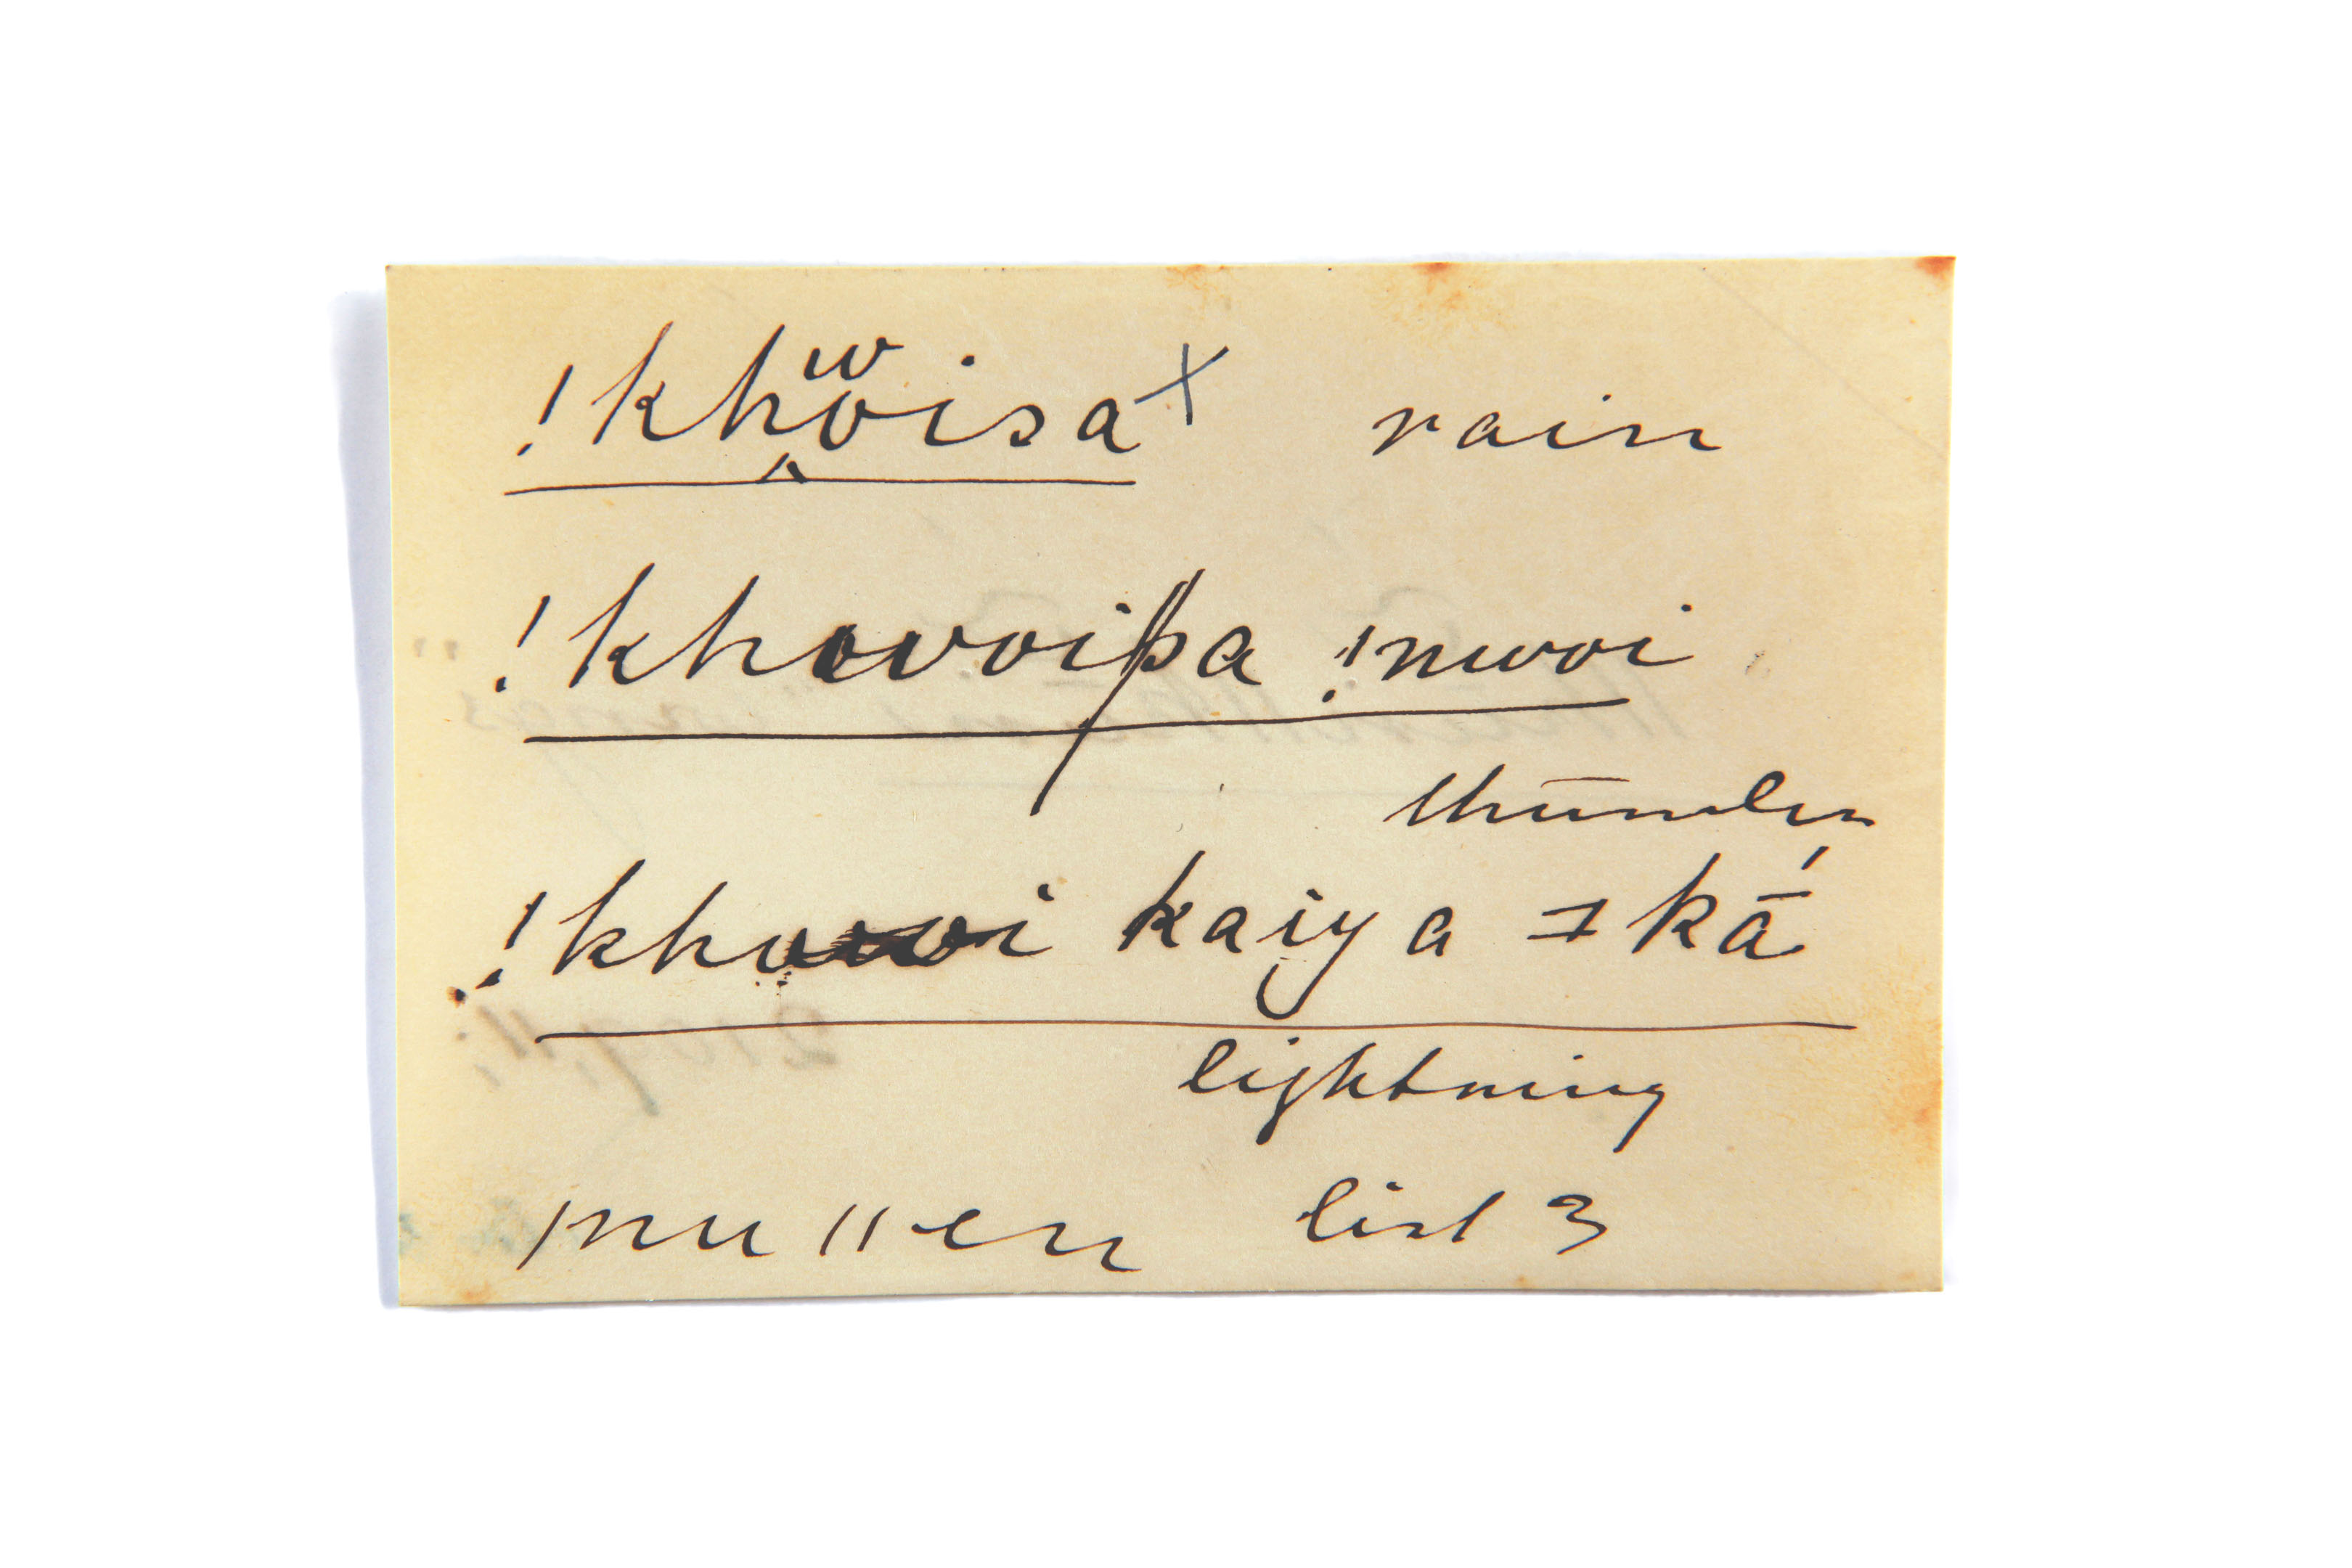 !khwoisa x rain
!khwoisa !nwoi
thunder
!khwoi kaiya ≠ká̄
lightning
/nu //en list 3